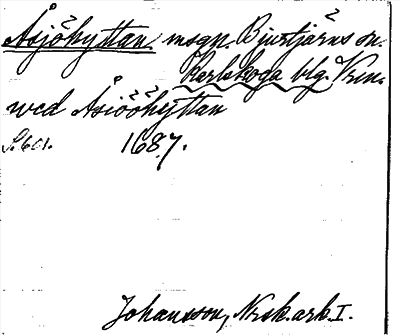 Åsjöhyttan msgn. Bjurtjärns sn.
Karlskoga blg. Vrm.
wed Åsiööhÿttan
S. 601. 1687.
Johansson, Nrsk. ark. I.